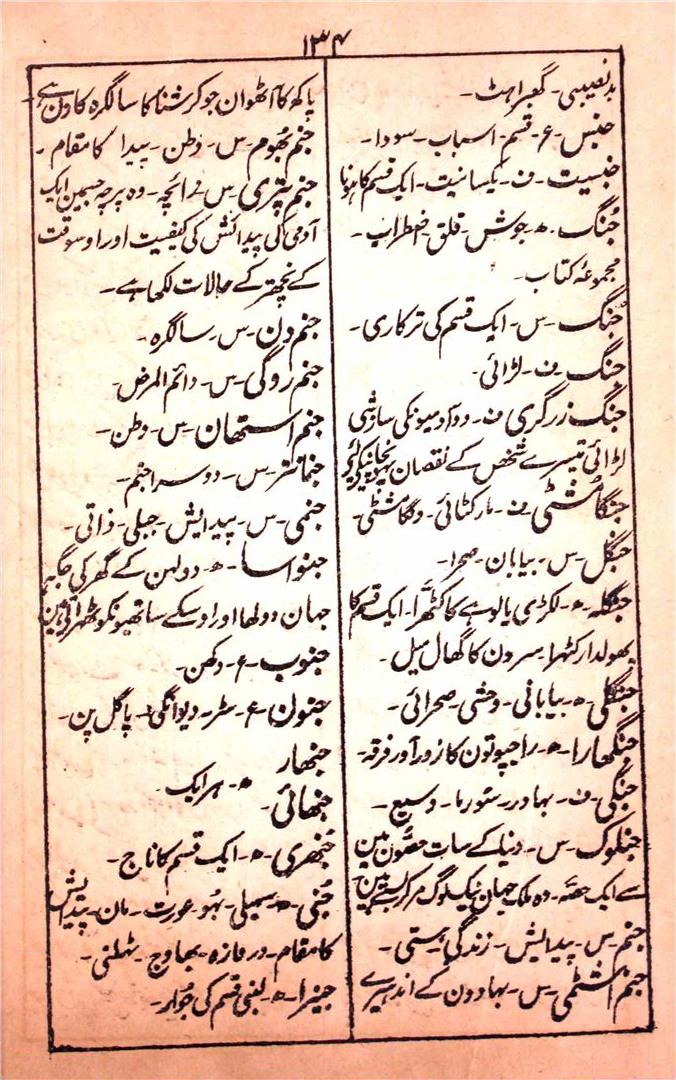 ۱۳۴
بدنصیبی۔ گھبراہٹ۔
جنس۔ ع۔ قسم۔ اسباب۔ سودا۔
جنسیت۔ ف۔ یکسانیت۔ ایک قسم کا ہونا
جُنگ۔ ھ۔ جوش۔ قلق۔ اضطراب۔
مجموعہ کتاب۔
جنگ۔ س۔ ایک قسم کی ترکاری۔
جنگ۔ ف۔ لڑائی۔
جنگ زرگری۔ ف۔ دو آدمیونکی سازشی
لڑائی تیسرے شخص کے نقصان پہونچانیکو
جنگا مُشتی۔ ف۔ مارکٹائی۔ دنگا مشتی۔
جنگل۔ س۔ بیابان۔ صحرا۔
جنگلہ۔ ھ۔ لکڑی یا لوہے کا کٹہرا۔ ایک قسم کا
پھولدار کٹہرا۔ سردن کا گھال میل۔
جنگلی۔ ھ۔ بیابانی۔ وحشی۔ صحرائی۔
جنگھارا۔ ھ۔ راجپوتون کا زور آور فرقہ۔
جنگی۔ ف۔ بہادر۔ سورما۔ وسیع۔
جنلوک۔ س۔ دنیا کے سات حصّون مین
سے ایک حصّہ۔ وہ ملک جہان نیک لوگ مرکر بستے ہین
جنم۔ س۔ پیدایش۔ زندگی۔ ہستی۔
جنم اشٹمی۔ س۔ بہادون کے اندھیرے
پاکھ کا آٹھوان جو کرشنا کا سالگرہ کا دن ہے
جنم بھُوم۔ س۔ وطن۔ پیدا کا مقام۔
جنم پتری۔ س۔ زائچہ۔ وہ پرچہ جسمین ایک
آدمی کی پیدائش کی کیفیت اور اوسوقت
کے نچھتر کے حالات لکھا ہے۔
جنم دن۔ س۔ سالگرہ۔
جنم روگی۔ س۔ دائم المرض۔
جنم استھان۔ س۔ وطن۔
جنمانتر۔ س۔ دوسرا جنم۔
جنمی۔ س۔ پیدایش۔ جبلی۔ ذاتی۔
جنواسا۔ ھ۔ دولہن کے گھر کی جگہ
جہان دولھا اور اوسکے ساتھیونکو ٹھراتے ہین
جنوب۔ ع۔ دکھن۔
جنون۔ ع۔ سڑ۔ دیوانگی۔ پاگل پن۔
جنھار
ھ۔ ہر ایک۔
جنھائی۔
جنھری۔ ھ۔ ایک قسم کا ناج۔
جُنی۔ ھ۔ سہیلی۔ بہُو۔ عورت۔ مان۔ پیدایش
کا مقام۔ دروازہ۔ بھاوج۔ ٹہلنی۔
جنیرا۔ ھ۔ لنبی قسم کی جُوار۔